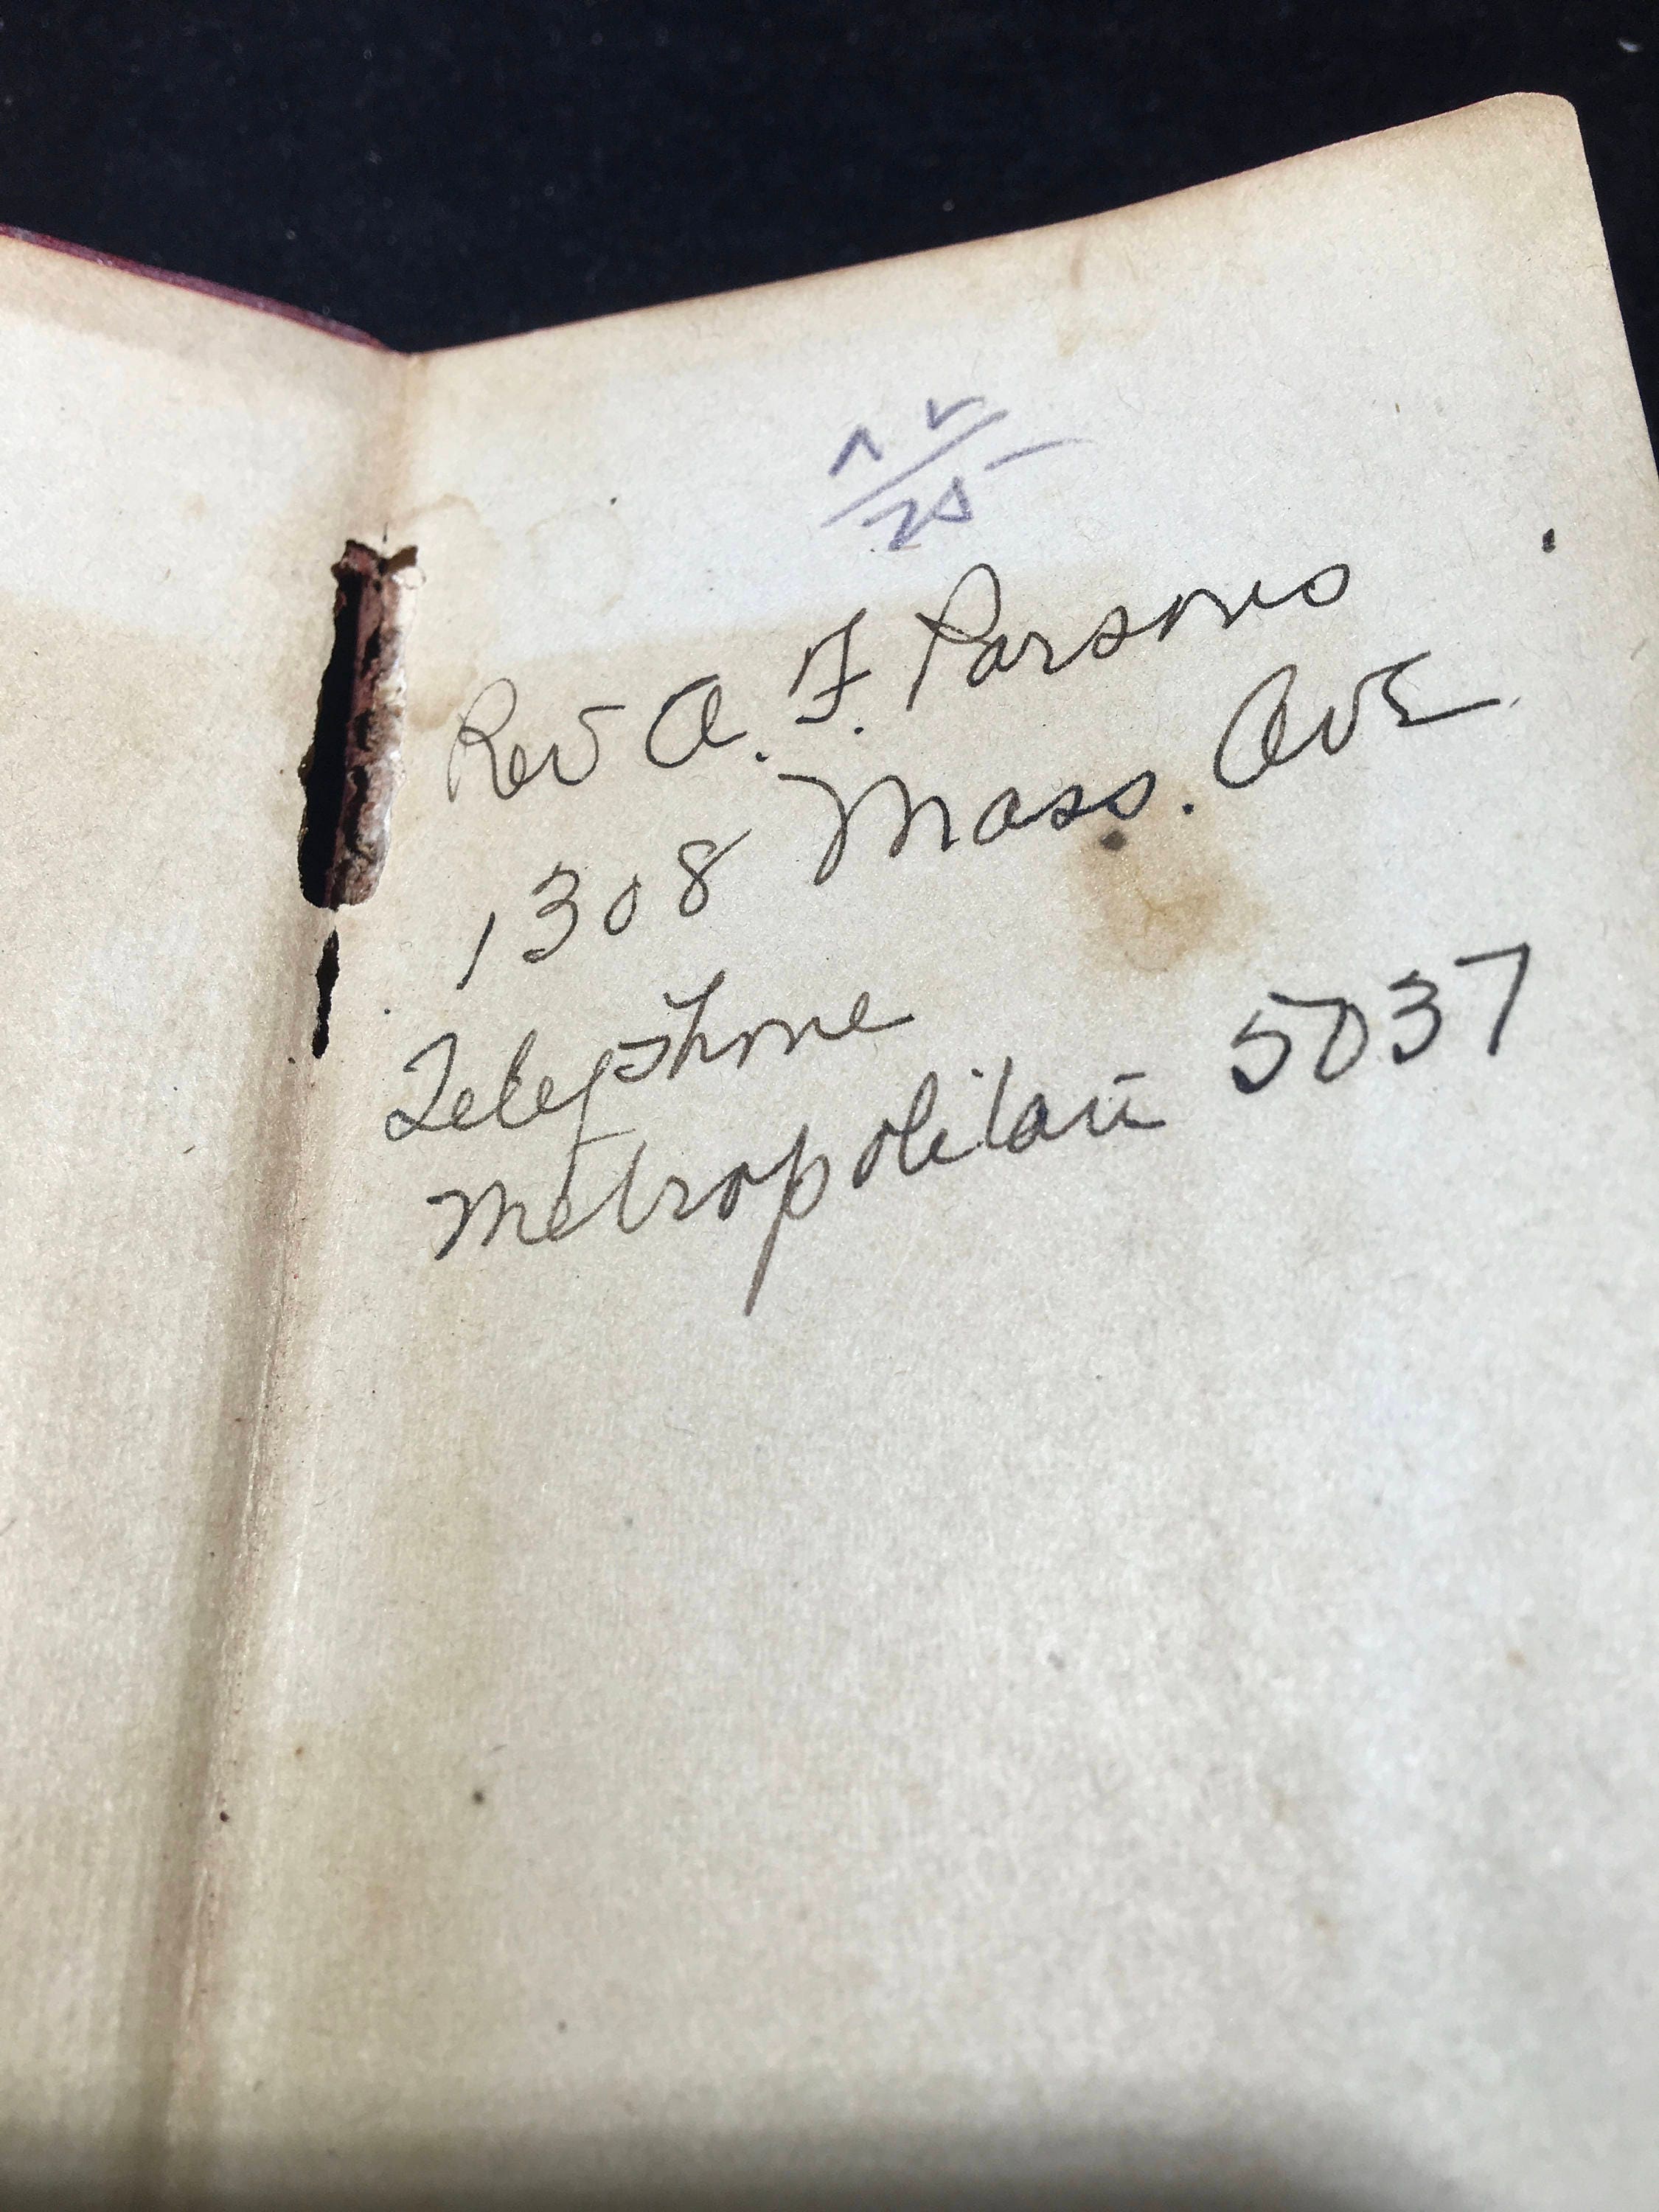 Rev A. F. Parsons
1308 Mass. Ave
Telephone
Metropolitan 5037